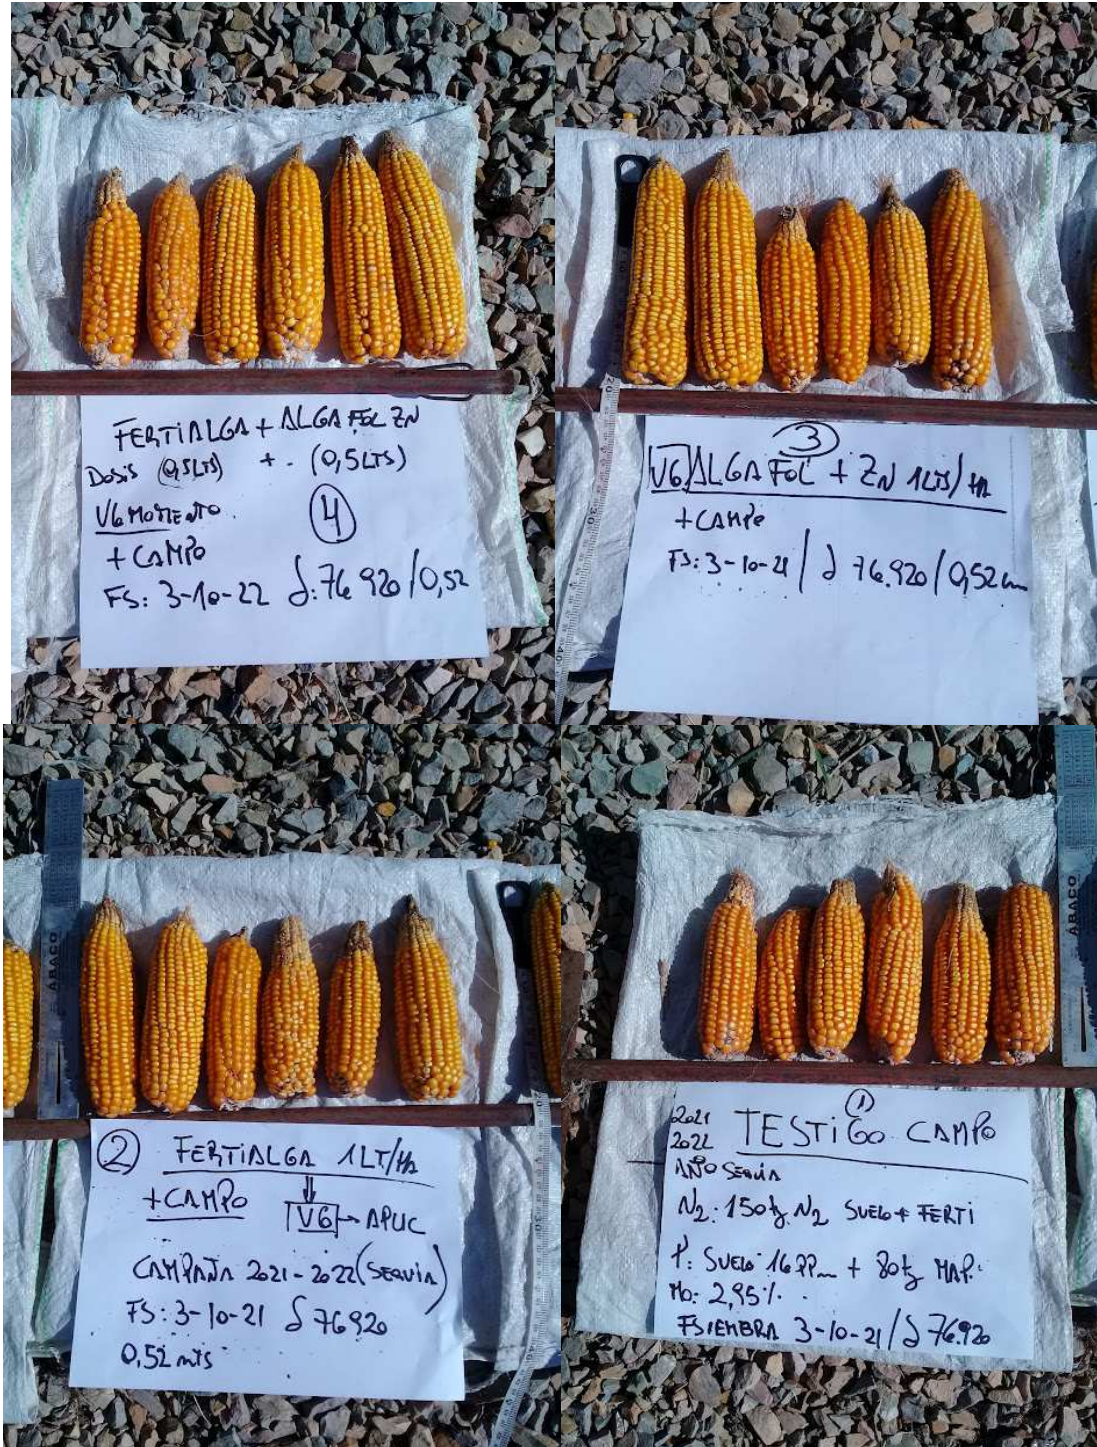 FERTIALGA + ALGA FOL ZN
DOSIS (0,5LTS) + (0,5LTS)
V6 MOMENTO.
4
+ CAMPO
FS: 3-10-22 δ: 76.920/0,52
3
V6 ALGA FOL + ZN 1LTS/HA
+ CAMPO
FS: 3-10-21 / δ 76.920/0,52 cm
20
30
40
ABACO
2 FERTIALGA 1LT/HA
+ CAMPO
V6 → APLIC
CAMPAÑA 2021-2022 (SEQUIA)
FS: 3-10-21 δ 76920
0,52 mTS
30
ABACO
1
2021
2022 TESTIGO CAMPO
AÑO SEQUIA
N2: 150 Kg. N2 SUELO + FERTI
P: SUELO 16 PPm + 80 Kg MAP.
MO: 2,95%.
FSIEMBRA 3-10-21 / δ 76.920